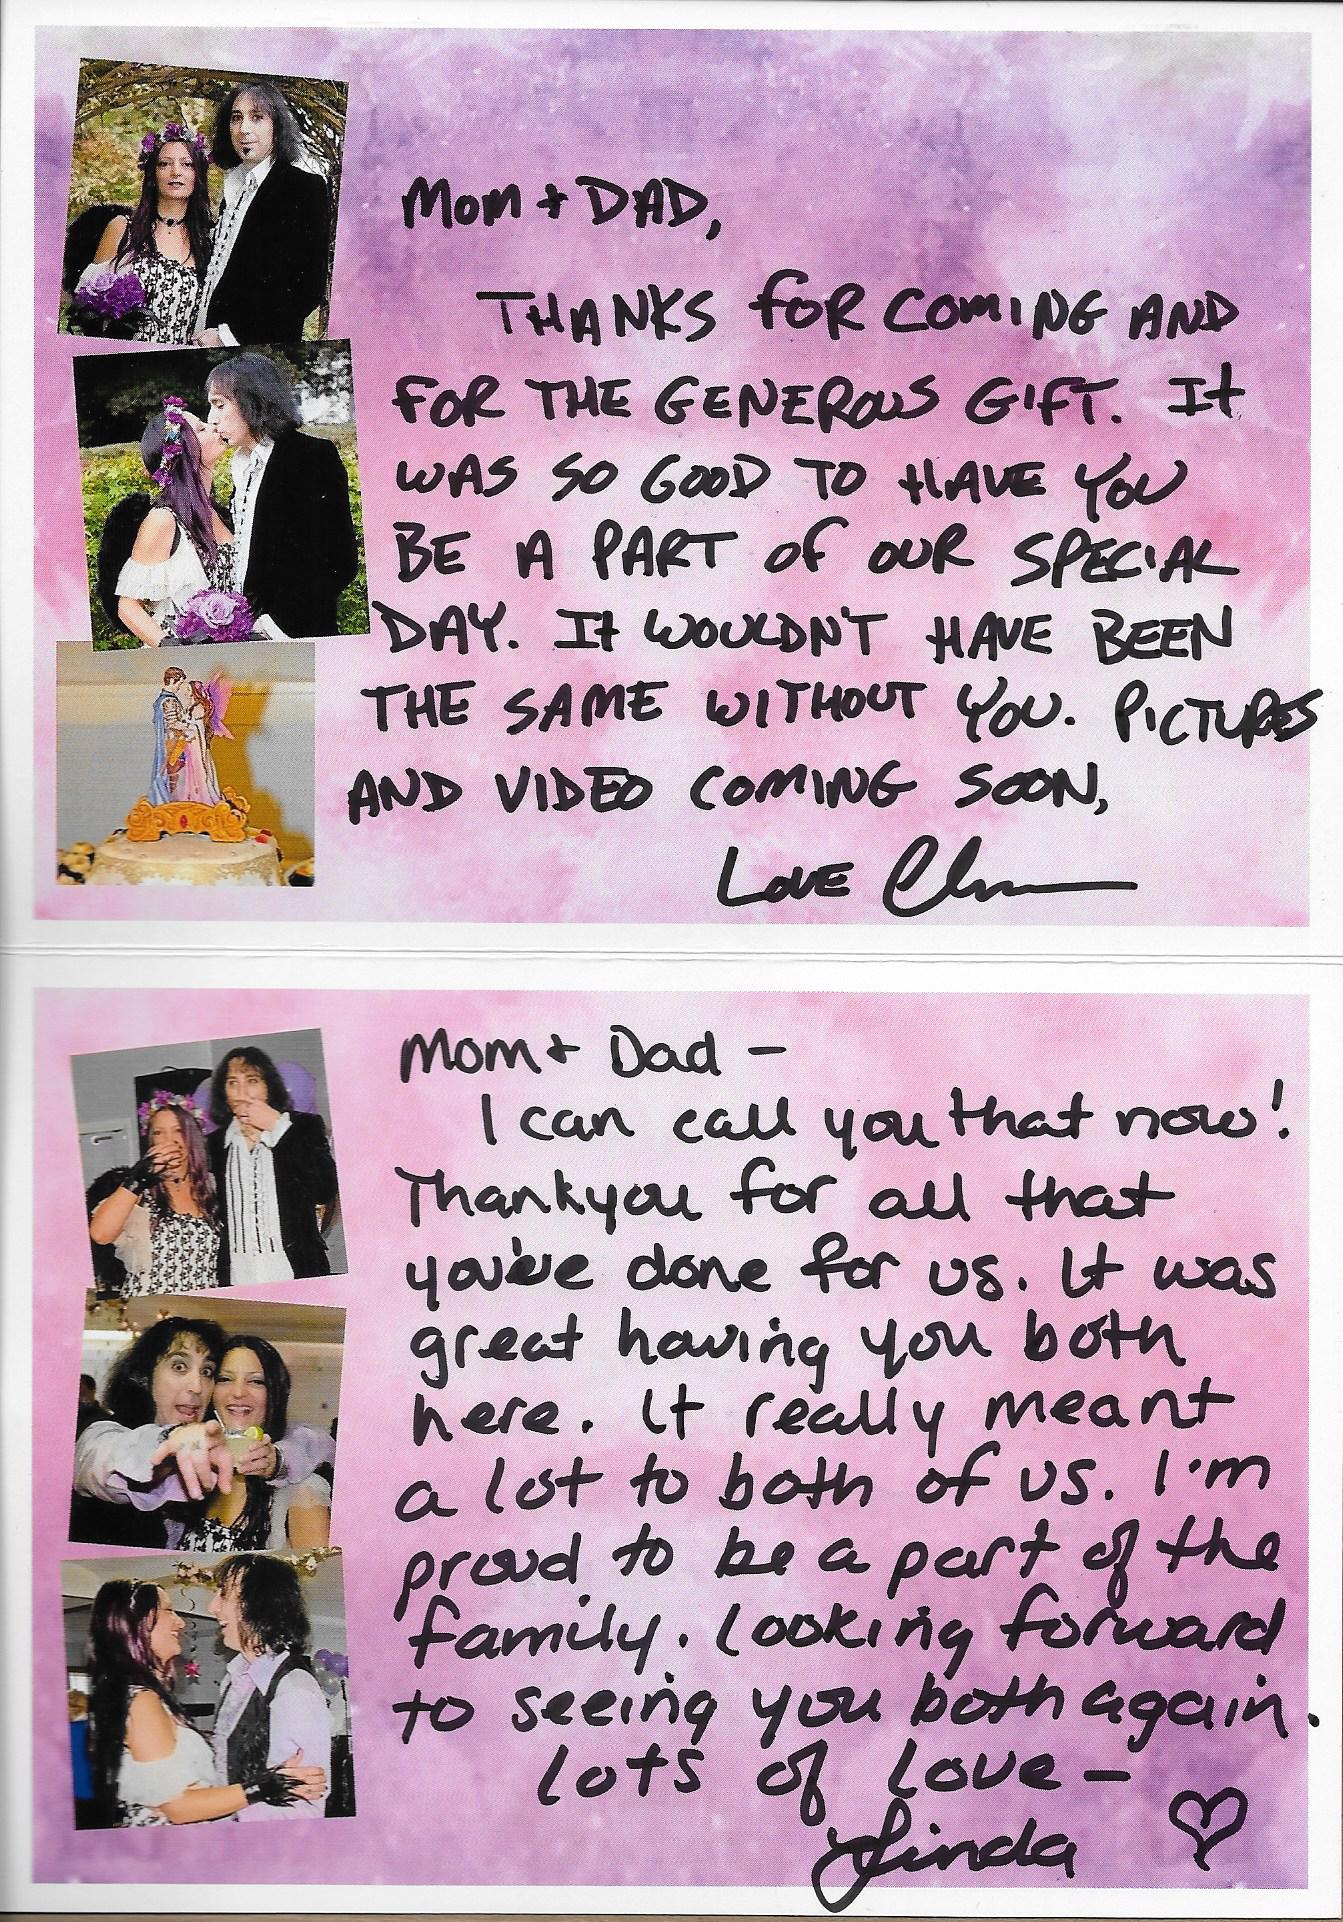 Mom + DAD,
THANKS foR COMING AND
FOR THE GENEROUS GIFT. It
WAS SO GOOD TO HAVE YOU
BE A PART of OUR SPECIAL
DAY. It WOULDN'T HAVE BEEN
THE SAME WITHOUT YOU. PICTURES
AND VIDEO COMING SOON,
LOVE
Mom + Dad -
I can call you that now!
Thankyou for all that
you've done for us. It was
great having you both
here. It really meant
a lot to both of us. I'm
proud to be a part of the
family. Looking forward
to seeing you both again.
Lots of Love -
Linda